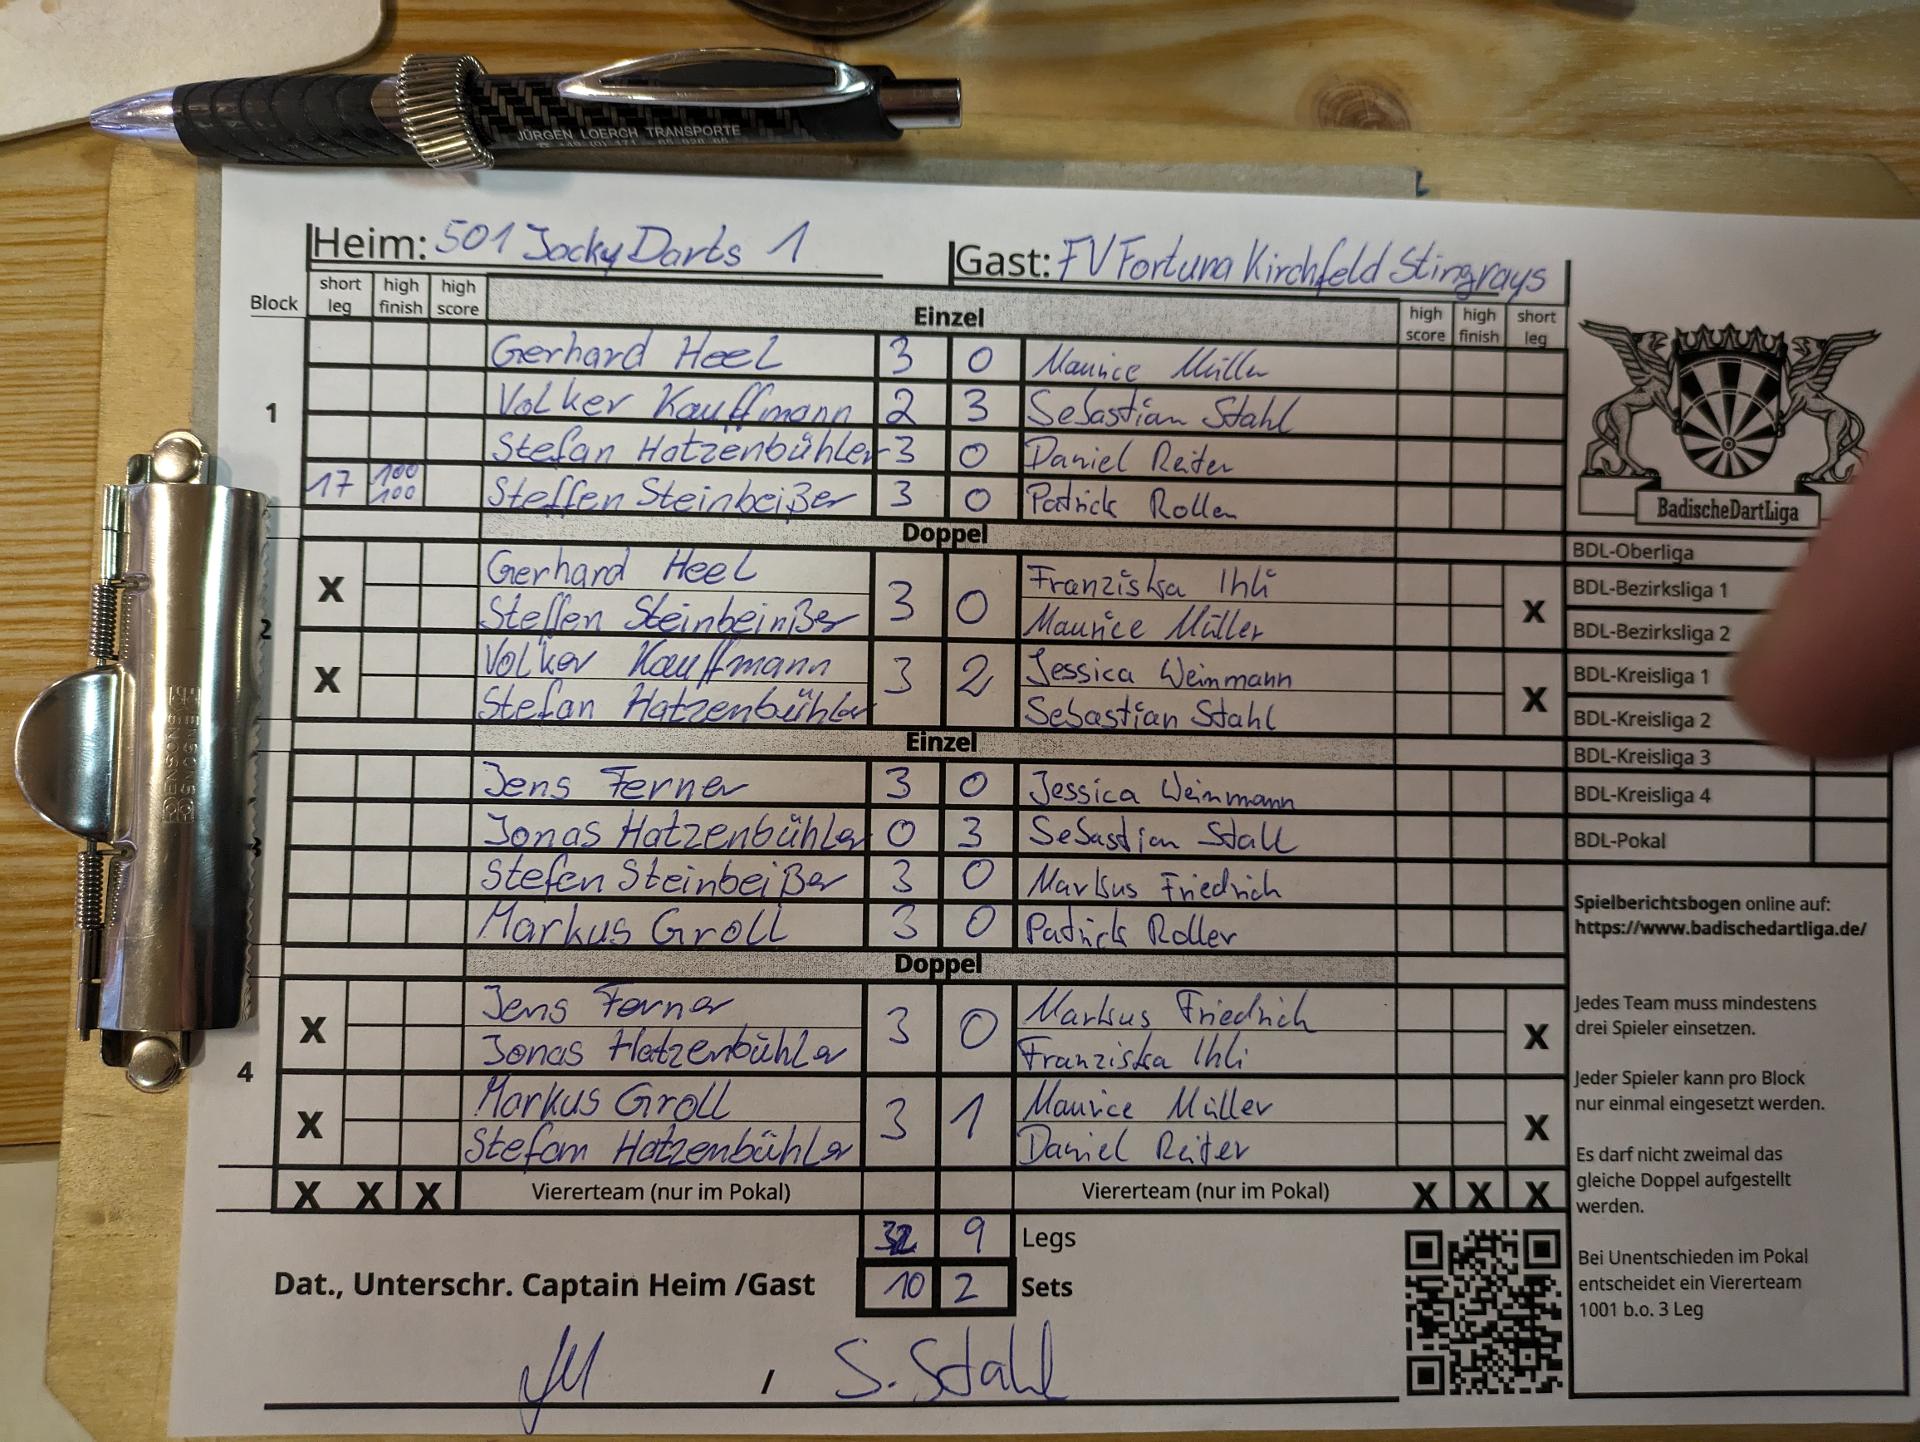 JÜRGEN LOERCH TRANSPORTE
Heim: 501 Jocky Darts 1 Gast: FV Fortuna Kirchfeld Stingrays
Block short leg high finish high score Einzel high score high finish short leg
Gerhard Heel 3 0 Maurice Müller
1 Volker Kauffmann 2 3 Sebastian Stahl
Stefan Hatzenbühler 3 0 Daniel Reiter
17 100 100 Steffen Steinbeißer 3 0 Patrick Roller
Doppel
X Gerhard Heel 3 0 Franziska Ihli X
Steffen Steinbeinißer Maurice Müller
2
X Volker Kauffmann 3 2 Jessica Weinmann X
Stefan Hatzenbühler Sebastian Stahl
Einzel
Jens Ferner 3 0 Jessica Weinmann
3 Jonas Hatzenbühler 0 3 Sebastian Stall
Stefen Steinbeißer 3 0 Markus Friedrich
Markus Groll 3 0 Patrick Roller
Doppel
X Jens Ferner 3 0 Markus Friedrich X
Jonas Hatzenbühler Franziska Ihli
4
X Markus Groll 3 1 Maurice Müller X
Stefan Hatzenbühler Daniel Reiter
X X X Viererteam (nur im Pokal) Viererteam (nur im Pokal) X X X
32 9 Legs
Dat., Unterschr. Captain Heim /Gast 10 2 Sets
/ S. Stahl
BadischeDartLiga
BDL-Oberliga
BDL-Bezirksliga 1
BDL-Bezirksliga 2
BDL-Kreisliga 1
BDL-Kreisliga 2
BDL-Kreisliga 3
BDL-Kreisliga 4
BDL-Pokal
Spielberichtsbogen online auf:
https://www.badischedartliga.de/
Jedes Team muss mindestens
drei Spieler einsetzen.
Jeder Spieler kann pro Block
nur einmal eingesetzt werden.
Es darf nicht zweimal das
gleiche Doppel aufgestellt
werden.
Bei Unentschieden im Pokal
entscheidet ein Viererteam
1001 b.o. 3 Leg